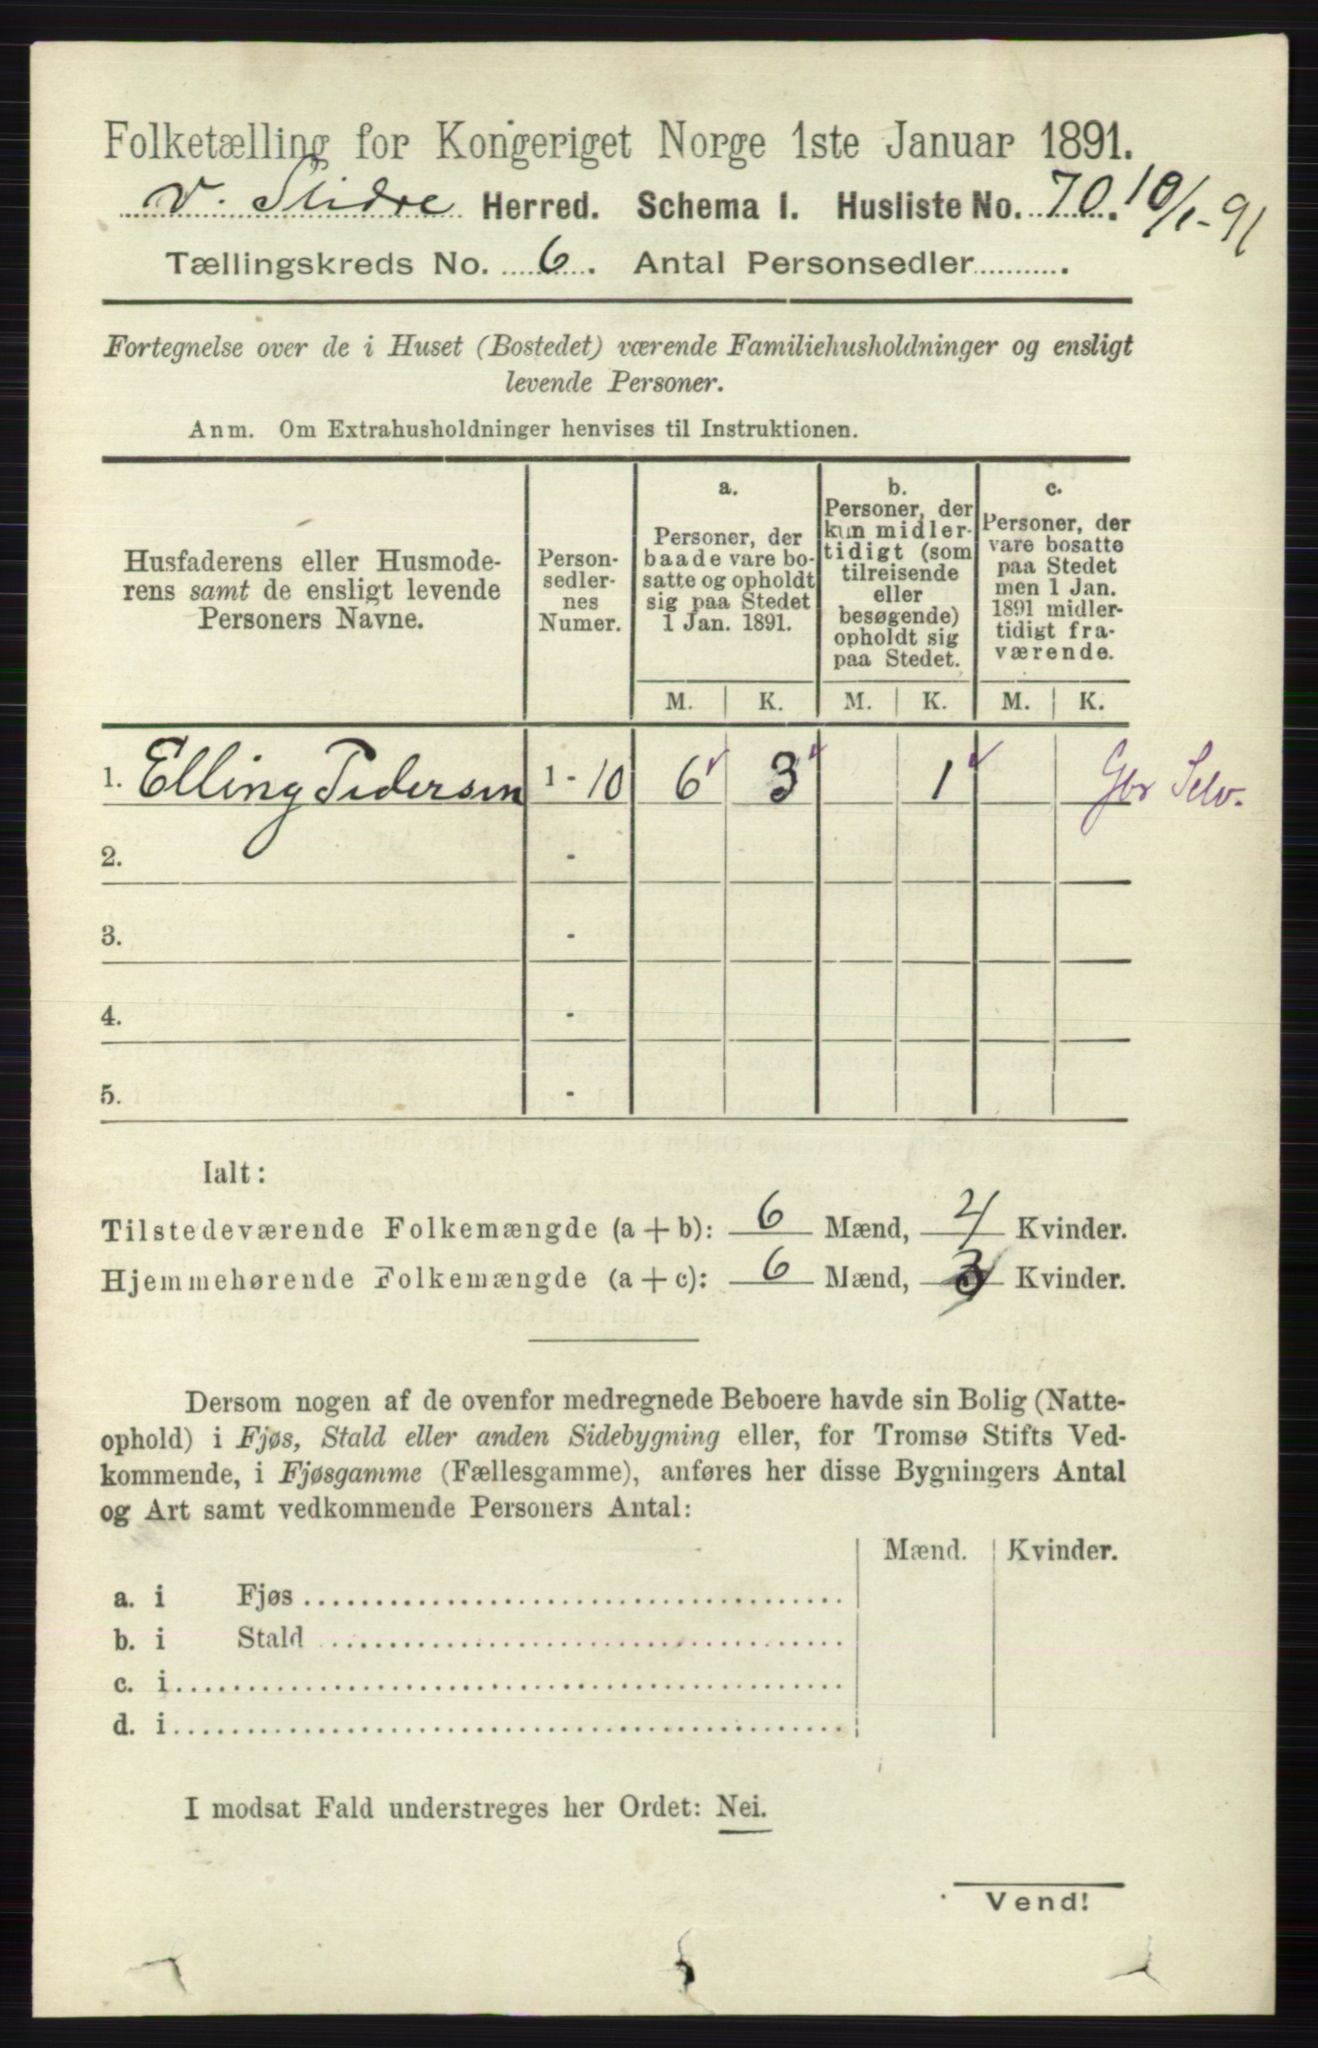 Folketælling for Kongeriget Norge 1ste Januar 1891.
V. Slidre Herred. Schema I. Husliste No. 70. 10/1-91
Tællingskreds No. 6. Antal Personsedler...........
Fortegnelse over de i Huset (Bostedet) værende Familiehusholdninger og ensligt
levende Personer.
Anm. Om Extrahusholdninger henvises til Instruktionen.
Husfaderens eller Husmode-
rens samt de ensligt levende
Personers Navne.
Person-
sedler-
nes
Numer.
a.
Personer, der
baade vare bo-
satte og opholdt
sig paa Stedet
1 Jan. 1891.
b.
Personer, der
kun midler-
tidigt (som
tilreisende
eller
besøgende)
opholdt sig
paa Stedet.
c.
Personer, der
vare bosatte
paa Stedet
men 1 Jan.
1891 midler-
tidigt fra-
værende.
M. K. M. K. M. K.
1. Elling Pedersen 1-10 6 3 1 Gbr Selv.
2. -
3. -
4. -
5. -
Ialt:
Tilstedeværende Folkemængde (a + b): 6 Mænd, 4 Kvinder.
Hjemmehørende Folkemængde (a + c): 6 Mænd, 3 Kvinder.
Dersom nogen af de ovenfor medregnede Beboere havde sin Bolig (Natte-
ophold) i Fjøs, Stald eller anden Sidebygning eller, for Tromsø Stifts Ved-
kommende, i Fjøsgamme (Fællesgamme), anføres her disse Bygningers Antal
og Art samt vedkommende Personers Antal:
Mænd. Kvinder.
a. i Fjøs
b. i Stald
c. i
d. i
I modsat Fald understreges her Ordet: Nei.
Vend!